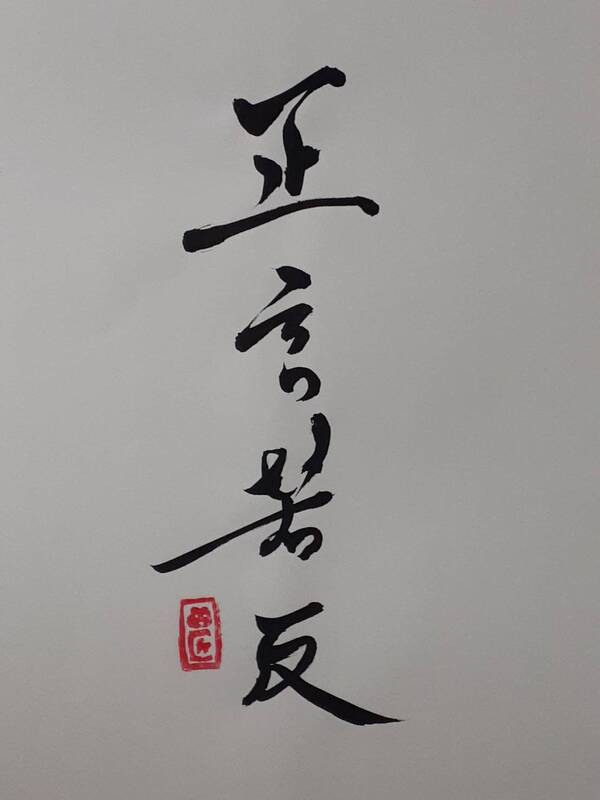 正言若反